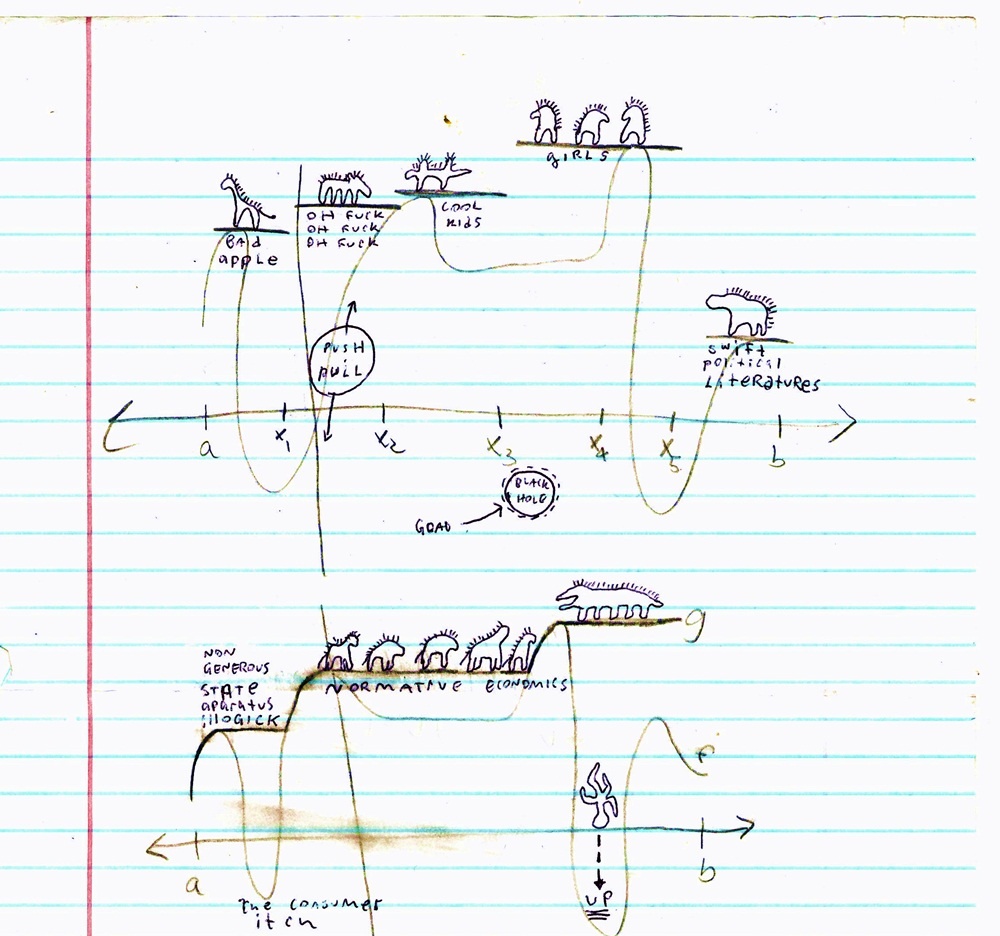 gIRLS
COOL
KIdS
OH FUCK
OH FUCK
OH FUCK
BAd
apple
PUSH
PULL
swift
political
LiteRatURES
a
x1
x2
x3
x4
x5
b
BLACK
HOLE
GOAD
g
NON
GENEROUS
STATE
apaRatus
illOGICK
NORMATIVE ECONOMICS
f
a
b
UP
The CONSUMER
itch